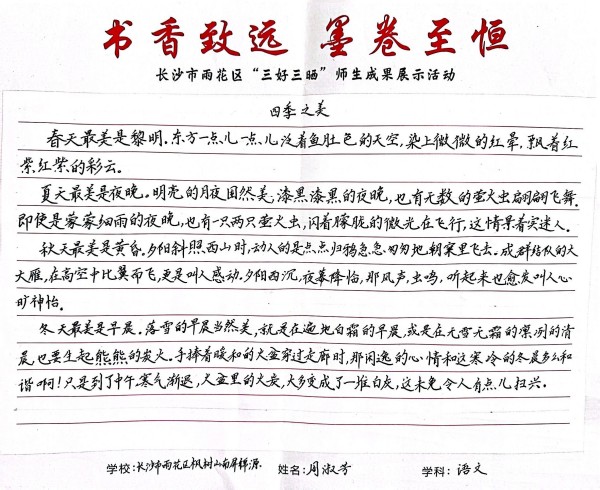 书香致远 墨卷至恒
长沙市雨花区“三好三晒”师生成果展示活动
四季之美
春天最美是黎明.东方一点儿一点儿泛着鱼肚色的天空,染上微微的红晕,飘着红
紫红紫的彩云.
夏天最美是夜晚.明亮的月夜固然美,漆黑漆黑的夜晚,也有无数的萤火虫翩翩飞舞.
即使是蒙蒙细雨的夜晚,也有一只两只萤火虫,闪着朦胧的微光在飞行,这情景着实迷人.
秋天最美是黄昏.夕阳斜照西山时,动人的是点点归鸦急急匆匆地朝窠里飞去.成群结队的大
大雁,在高空中比翼而飞,更是叫人感动.夕阳西沉,夜幕降临,那风声,虫鸣,听起来也愈发叫人心
旷神怡.
冬天最美是早晨.落雪的早晨当然美,就是在遍地白霜的早晨,或是在无雪无霜的凛冽的清
晨也要生起熊熊的炭火.手捧着暖和的火盆穿过走廊时,那闲逸的心情和这寒冷的冬晨多么和
谐啊!只是到了中午,寒气渐退,火盆里的火炭,大多变成了一堆白灰,这未免令人有点儿扫兴.
学校:长沙市雨花区枫树山南屏锦源 姓名:周淑芳 学科:语文